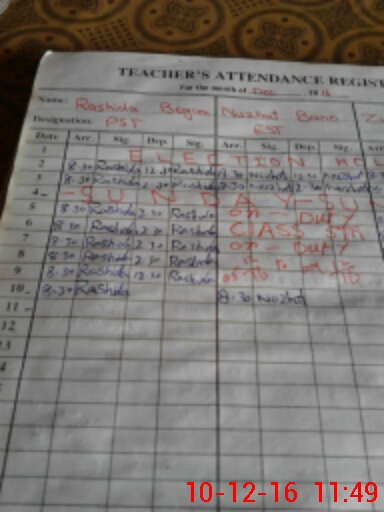 TEACHER'S ATTENDANCE REGIST
For the month of Dec 2016
Name: Rashida Begum Nuzhat Bano
Designation: PST EST
Date Arr. Sig. Dep. Sig. Arr. Sig. Dep. Sig.
1
2 8.30 Rashida 12.30 Rashida 8.30 Nuzhat 12.30 Nuzhat
ELECTION HOL
3 8.30 Rashida 12.30 Rashida 8.30 Nuzhat 2.30 Nuzhat
4 -SUNDAY-SUN
5 8.30 Rashida 2.30 Rashida on - Duty
6 8.30 Rashida 2.30 Rashida CLASS 5th
7 8.30 Rashida 2.30 Rashida on - Duty
8 8.30 Rashida 2.30 Rashida
9 8.30 Rashida 12.30 Rashida
10 8.30 Rashida 8.30 Nuzhat
11
12
13
10-12-16 11:49